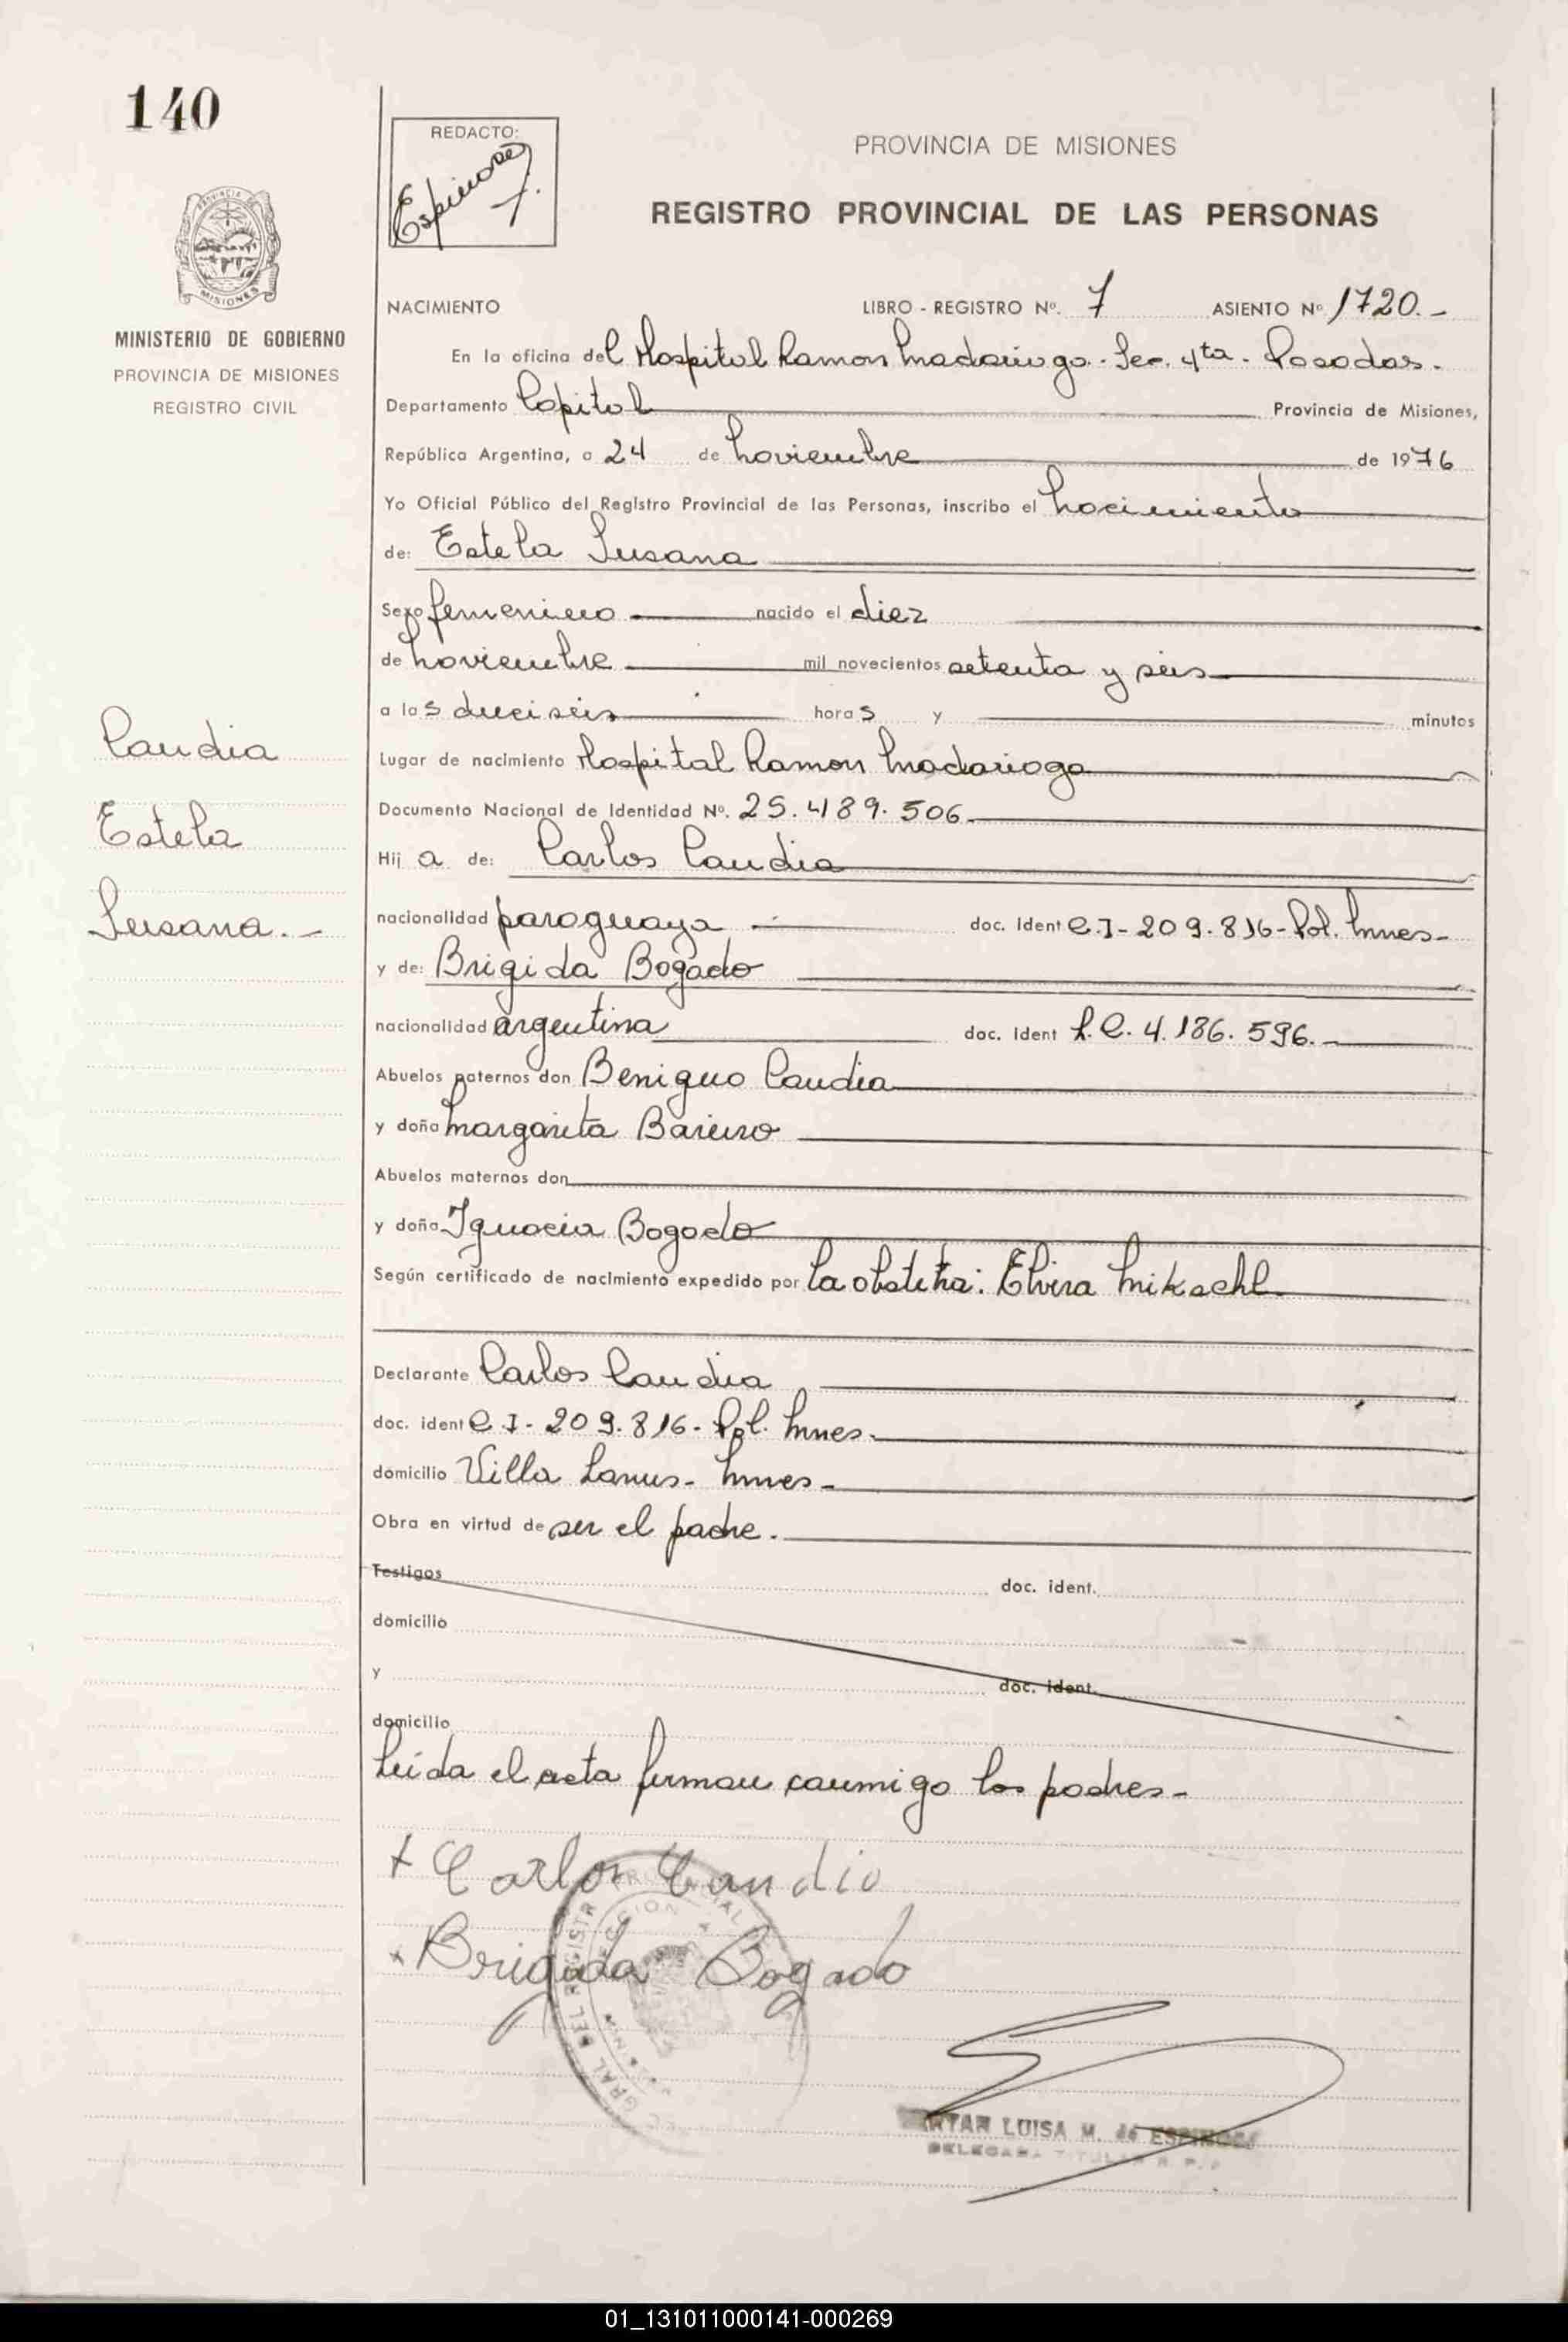 140
REDACTO:
Espinosa
PROVINCIA DE MISIONES
REGISTRO PROVINCIAL DE LAS PERSONAS
PROVINCIA DE
MISIONES
MINISTERIO DE GOBIERNO
PROVINCIA DE MISIONES
REGISTRO CIVIL
NACIMIENTO LIBRO - REGISTRO Nº. 7 ASIENTO Nº 1720.-
En la oficina del Hospital Ramon Madariaga - Sec. 4ta - Posadas.
Departamento Capital Provincia de Misiones,
República Argentina, a 24 de Noviembre de 1976
Yo Oficial Público del Registro Provincial de las Personas, inscribo el Nacimiento
de: Estela Susana
Sexo femenino nacido el diez
de Noviembre mil novecientos setenta y seis
a las dieciseis horas y minutos
Candia
Estela
Susana.-
Lugar de nacimiento Hospital Ramon Madariaga
Documento Nacional de Identidad Nº. 25.489.506
Hija de: Carlos Candia
nacionalidad paraguaya doc. ident C.I- 209.816- Pol. Mnes-
y de: Brigida Bogado
nacionalidad argentina doc. ident L.C. 4.186.596.-
Abuelos paternos don Benigno Candia
y doña Margarita Bareiro
Abuelos maternos don
y doña Ignacia Bogado
Según certificado de nacimiento expedido por La obstetra: Elvira Mikaehl
Declarante Carlos Candia
doc. ident C I- 209.816- Pol. Mnes.
domicilio Villa Lanus- Mnes-
Obra en virtud de ser el padre.
Testigos doc. ident.
domicilio
y doc. ident.
domicilio
Leída el acta firman conmigo los padres-
+ Carlos Candio
+ Brigida Bogado
LUISA M. de ESPINOSA
DELEGADA TITULAR R. P. P.
01_131011000141-000269